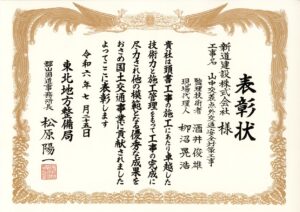 表彰状
新道建設株式会社 様
工事名 山中交差点外交通安全対策工事
監理技術者 酒井俊雄
現場代理人 柳沼晃浩
貴社は頭書工事の施工にあたり卓越した
技術力と施工管理をもって工事の完成に
尽力され他の模範となる優秀な成果を
おさめ国土交通事業に貢献されました
よってここに表彰します
令和六年七月二十五日
東北地方整備局
郡山国道事務所長 松原陽一